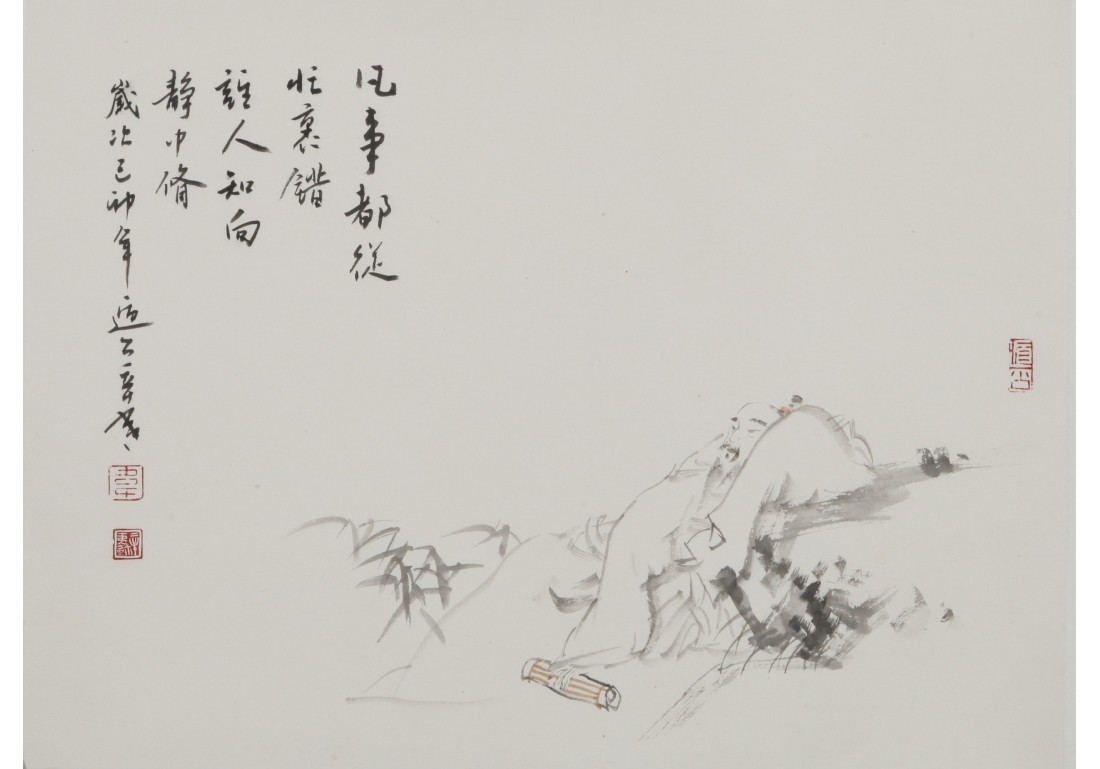 凡事都從
忙裏錯
誰人知向
靜中修
歲次己卯年